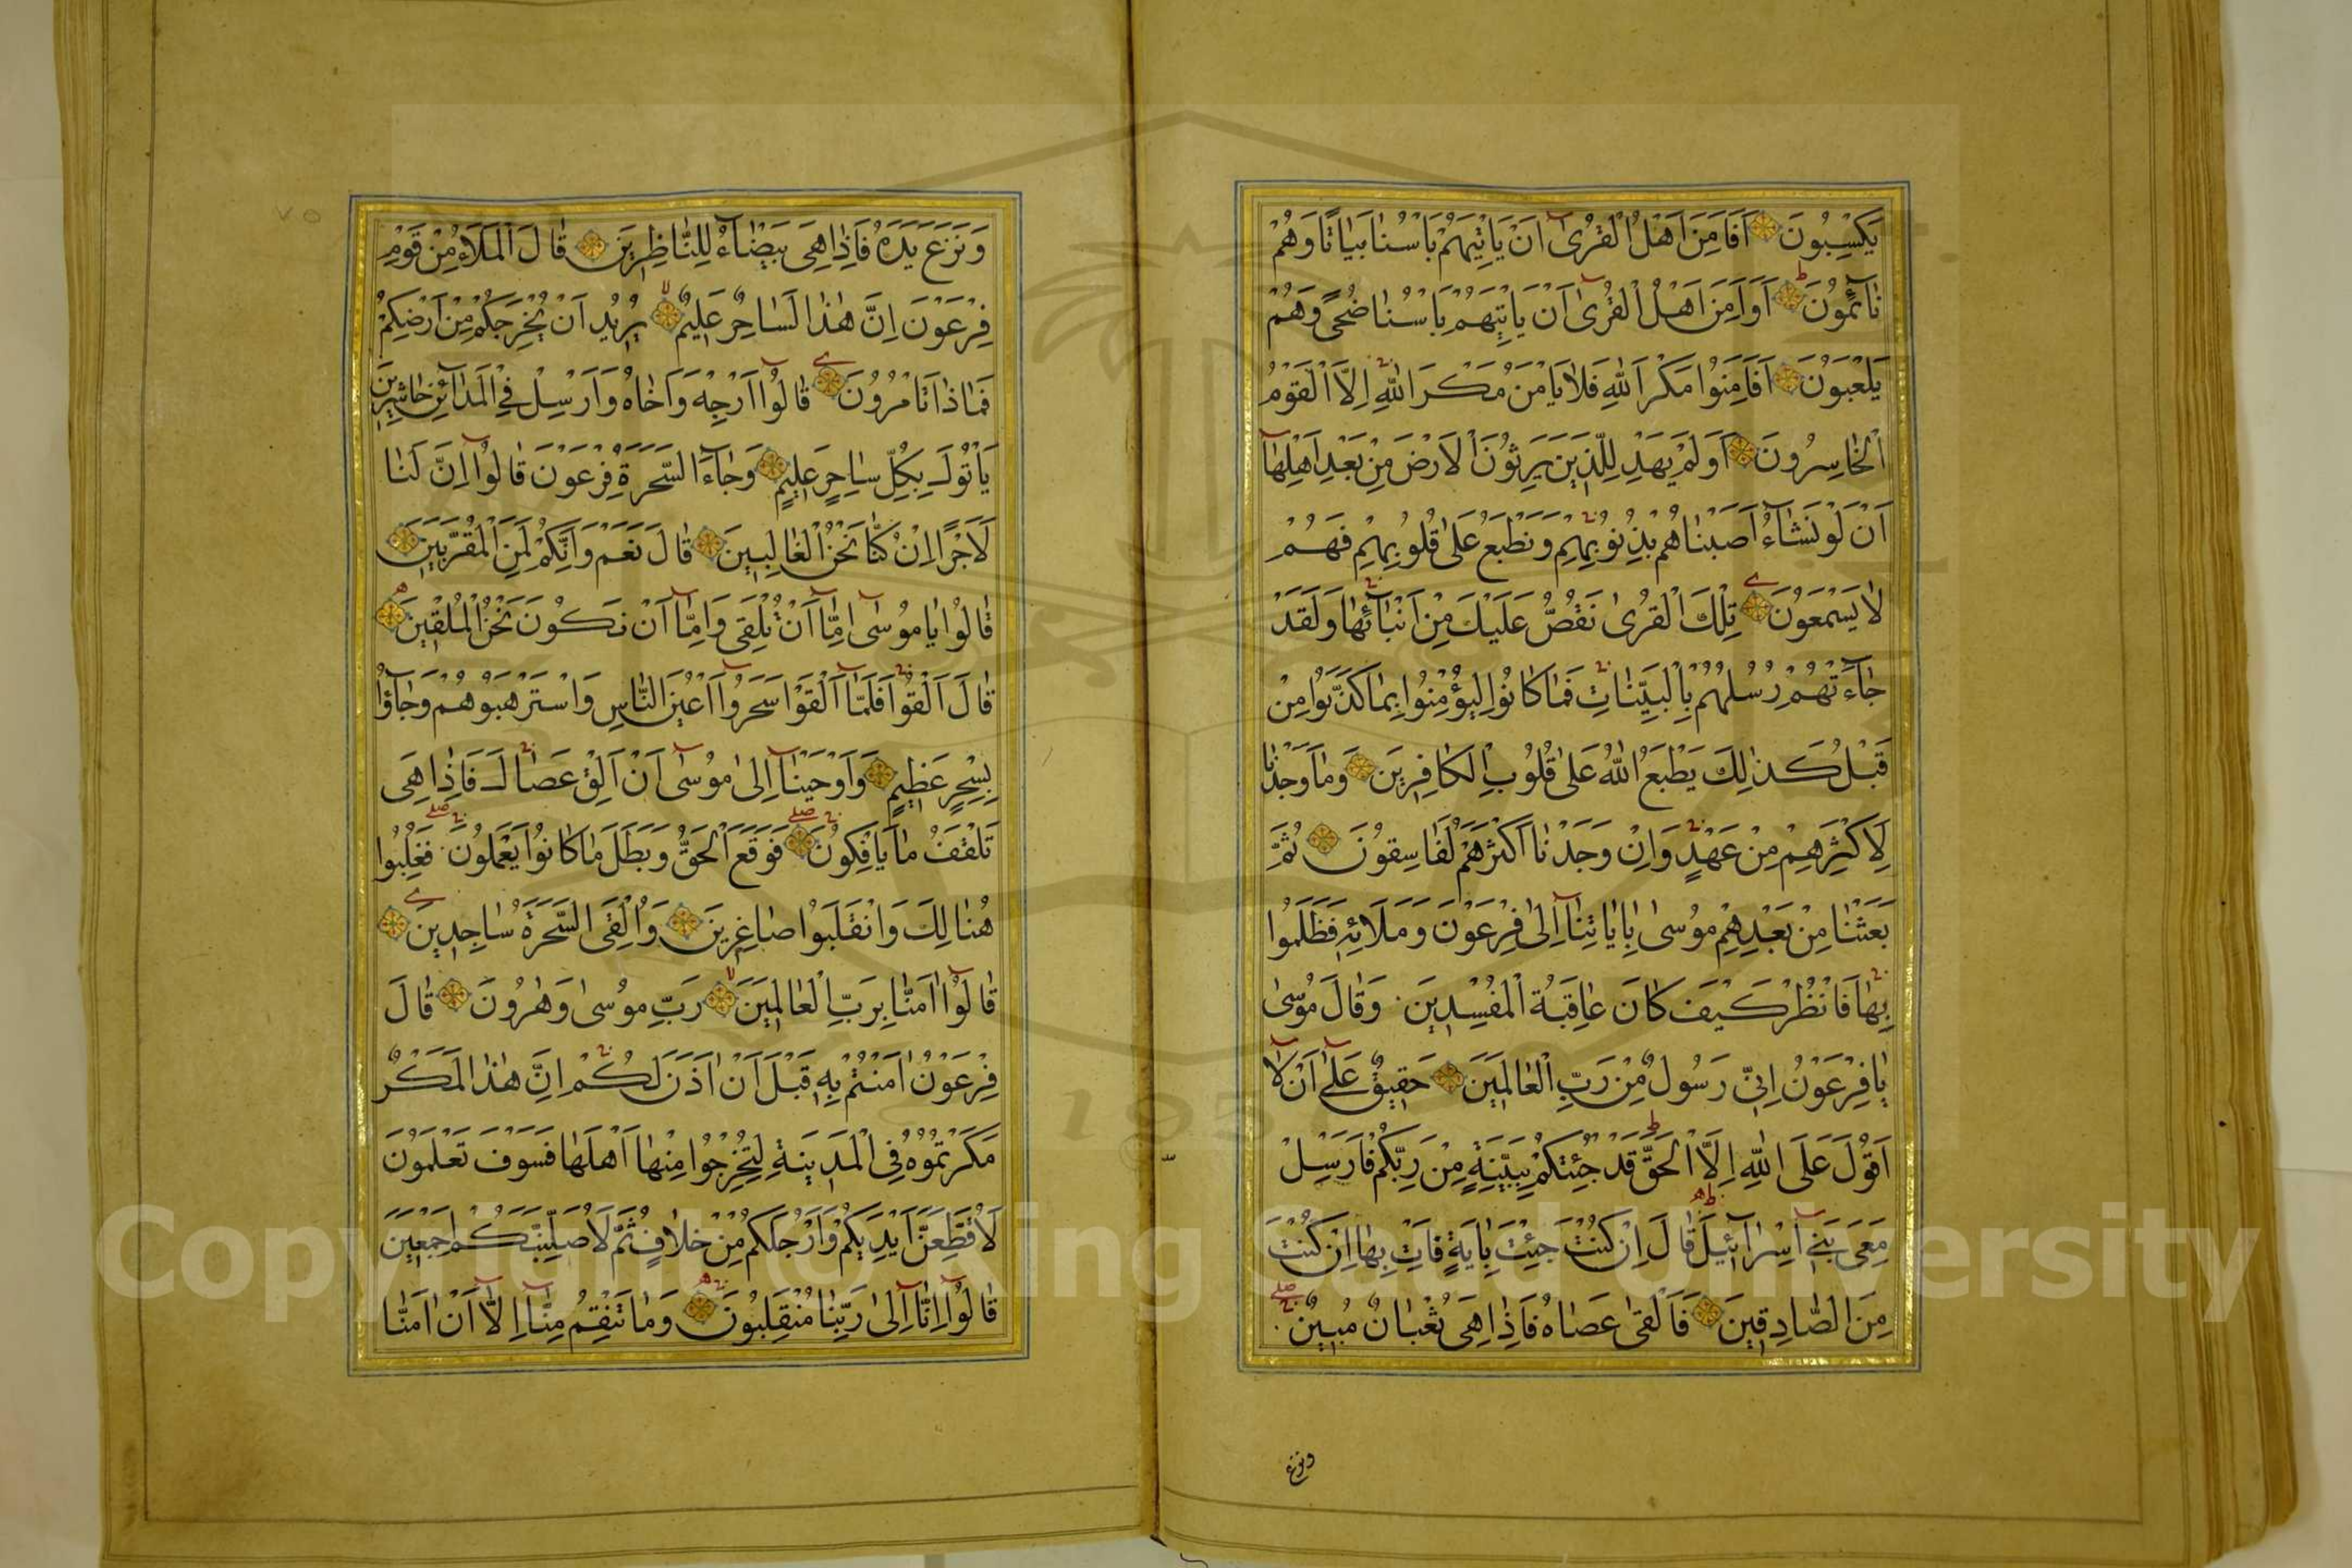 يَكْسِبُونَ اَفَاَمِنَ اَهْلُ الْقُرٰىٓ اَنْ يَاْتِيَهُمْ بَاْسُنَا بَيَاتًا وَهُمْ
نَآئِمُونَ اَوَاَمِنَ اَهْلُ الْقُرٰىٓ اَنْ يَاْتِيَهُمْ بَاْسُنَا ضُحًى وَهُمْ
يَلْعَبُونَ اَفَاَمِنُوا مَكْرَ اللّٰهِ فَلَا يَاْمَنُ مَكْرَ اللّٰهِ اِلَّا الْقَوْمُ
الْخَاسِرُونَ اَوَلَمْ يَهْدِ لِلَّذِينَ يَرِثُونَ الْاَرْضَ مِنْ بَعْدِ اَهْلِهَآ
اَنْ لَوْ نَشَآءُ اَصَبْنَاهُمْ بِذُنُوبِهِمْ وَنَطْبَعُ عَلٰى قُلُوبِهِمْ فَهُمْ
لَا يَسْمَعُونَ تِلْكَ الْقُرٰى نَقُصُّ عَلَيْكَ مِنْ اَنْبَآئِهَا وَلَقَدْ
جَآءَتْهُمْ رُسُلُهُمْ بِالْبَيِّنَاتِ فَمَا كَانُوا لِيُؤْمِنُوا بِمَا كَذَّبُوا مِنْ
قَبْلُ كَذٰلِكَ يَطْبَعُ اللّٰهُ عَلٰى قُلُوبِ الْكَافِرِينَ وَمَا وَجَدْنَا
لِاَكْثَرِهِمْ مِنْ عَهْدٍ وَاِنْ وَجَدْنَآ اَكْثَرَهُمْ لَفَاسِقُونَ ثُمَّ
بَعَثْنَا مِنْ بَعْدِهِمْ مُوسٰى بِاٰيَاتِنَآ اِلٰى فِرْعَوْنَ وَمَلَائِهِ فَظَلَمُوا
بِهَا فَانْظُرْ كَيْفَ كَانَ عَاقِبَةُ الْمُفْسِدِينَ وَقَالَ مُوسٰى
يَا فِرْعَوْنُ اِنِّي رَسُولٌ مِنْ رَبِّ الْعَالَمِينَ حَقِيقٌ عَلٰٓى اَنْ لَآ
اَقُولَ عَلَى اللّٰهِ اِلَّا الْحَقَّ قَدْ جِئْتُكُمْ بِبَيِّنَةٍ مِنْ رَبِّكُمْ فَاَرْسِلْ
مَعِىَ بَنِيٓ اِسْرَآئِيلَ قَالَ اِنْ كُنْتَ جِئْتَ بِاٰيَةٍ فَاْتِ بِهَا اِنْ كُنْتَ
مِنَ الصَّادِقِينَ فَاَلْقٰى عَصَاهُ فَاِذَا هِىَ ثُعْبَانٌ مُبِينٌ
ونزع
٧٥
وَنَزَعَ يَدَهُ فَاِذَا هِىَ بَيْضَآءُ لِلنَّاظِرِينَ قَالَ الْمَلَاُ مِنْ قَوْمِ
فِرْعَوْنَ اِنَّ هٰذَا لَسَاحِرٌ عَلِيمٌ يُرِيدُ اَنْ يُخْرِجَكُمْ مِنْ اَرْضِكُمْ
فَمَاذَا تَاْمُرُونَ قَالُوٓا اَرْجِهْ وَاَخَاهُ وَاَرْسِلْ فِي الْمَدَآئِنِ حَاشِرِينَ
يَاْتُوكَ بِكُلِّ سَاحِرٍ عَلِيمٍ وَجَآءَ السَّحَرَةُ فِرْعَوْنَ قَالُوٓا اِنَّ لَنَا
لَاَجْرًا اِنْ كُنَّا نَحْنُ الْغَالِبِينَ قَالَ نَعَمْ وَاِنَّكُمْ لَمِنَ الْمُقَرَّبِينَ
قَالُوا يَا مُوسٰىٓ اِمَّآ اَنْ تُلْقِىَ وَاِمَّآ اَنْ نَكُونَ نَحْنُ الْمُلْقِينَ
قَالَ اَلْقُوا فَلَمَّآ اَلْقَوْا سَحَرُوٓا اَعْيُنَ النَّاسِ وَاسْتَرْهَبُوهُمْ وَجَآؤُا
بِسِحْرٍ عَظِيمٍ وَاَوْحَيْنَآ اِلٰى مُوسٰىٓ اَنْ اَلْقِ عَصَاكَ فَاِذَا هِىَ
تَلْقَفُ مَا يَاْفِكُونَ فَوَقَعَ الْحَقُّ وَبَطَلَ مَا كَانُوا يَعْمَلُونَ فَغُلِبُوا
هُنَالِكَ وَانْقَلَبُوا صَاغِرِينَ وَاُلْقِىَ السَّحَرَةُ سَاجِدِينَ
قَالُوٓا اٰمَنَّا بِرَبِّ الْعَالَمِينَ رَبِّ مُوسٰى وَهٰرُونَ قَالَ
فِرْعَوْنُ اٰمَنْتُمْ بِهِ قَبْلَ اَنْ اٰذَنَ لَكُمْ اِنَّ هٰذَا لَمَكْرٌ
مَكَرْتُمُوهُ فِي الْمَدِينَةِ لِتُخْرِجُوا مِنْهَا اَهْلَهَا فَسَوْفَ تَعْلَمُونَ
لَاُقَطِّعَنَّ اَيْدِيَكُمْ وَاَرْجُلَكُمْ مِنْ خِلَافٍ ثُمَّ لَاُصَلِّبَنَّكُمْ اَجْمَعِينَ
قَالُوٓا اِنَّآ اِلٰى رَبِّنَا مُنْقَلِبُونَ وَمَا تَنْقِمُ مِنَّآ اِلَّآ اَنْ اٰمَنَّا
Copyright © King Saud University
195